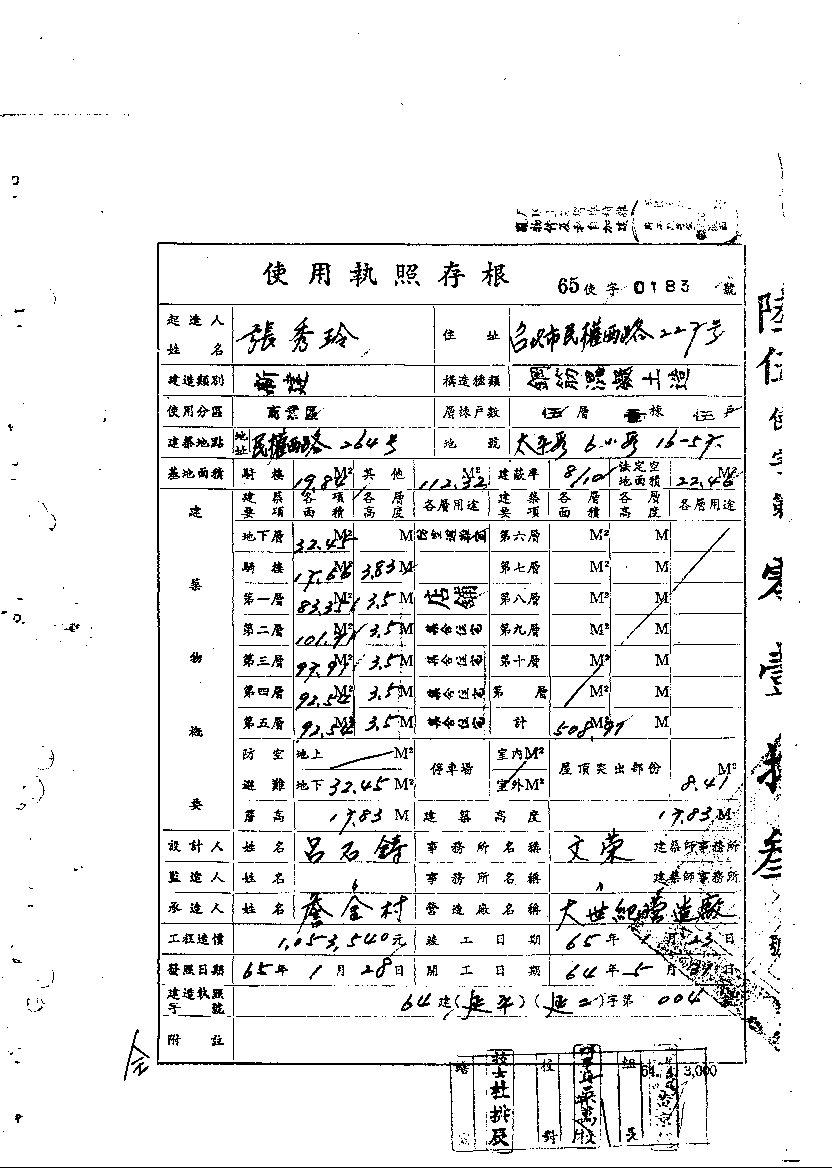 使用執照存根 65使字0183號
起造人姓名 張秀玲 住址 台北市民權西路227号
建造類別 新建 構造種類 鋼筋混凝土造
使用分區 商業區 層棟戶數 伍層 壹棟 伍戶
建築地點 地址 民權西路264号 地號 太平段6小段16-5
基地面積 騎樓 19.84M² 其他 112.32M² 建蔽率 8/10 法定空地面積 22.46M²
建築物概要 建築要項 各項面積 各層高度 各層用途 建築要項 各層面積 各層高度 各層用途
地下層 32.45M² M 第六層 M² M
騎樓 17.66M² 3.83M 第七層 M² M
第一層 83.35M² 3.5M 店鋪 第八層 M² M
第二層 101.97M² 3.5M 集合住宅 第九層 M² M
第三層 97.97M² 3.5M 集合住宅 第十層 M² M
第四層 92.54M² 3.5M 集合住宅 第 層 M² M
第五層 92.54M² 3.5M 集合住宅 計 508.97M²
防空 地上 M² 停車場 室內M² 屋頂突出部份 8.41M²
避難 地下 32.45M² 室外M²
簷高 17.83M 建築高度 17.83M
設計人 姓名 呂石鑄 事務所名稱 文榮 建築師事務所
監造人 姓名 〃 事務所名稱 〃 建築師事務所
承造人 姓名 詹金村 營造廠名稱 大世紀營造廠
工程造價 1,053,540元 竣工日期 65年1月23日
發照日期 65年1月28日 開工日期 64年5月 日
建造執照字號 64建(延平)(延二)字第004號
附註
64. 3,000
陸伍使字第零壹捌叁號